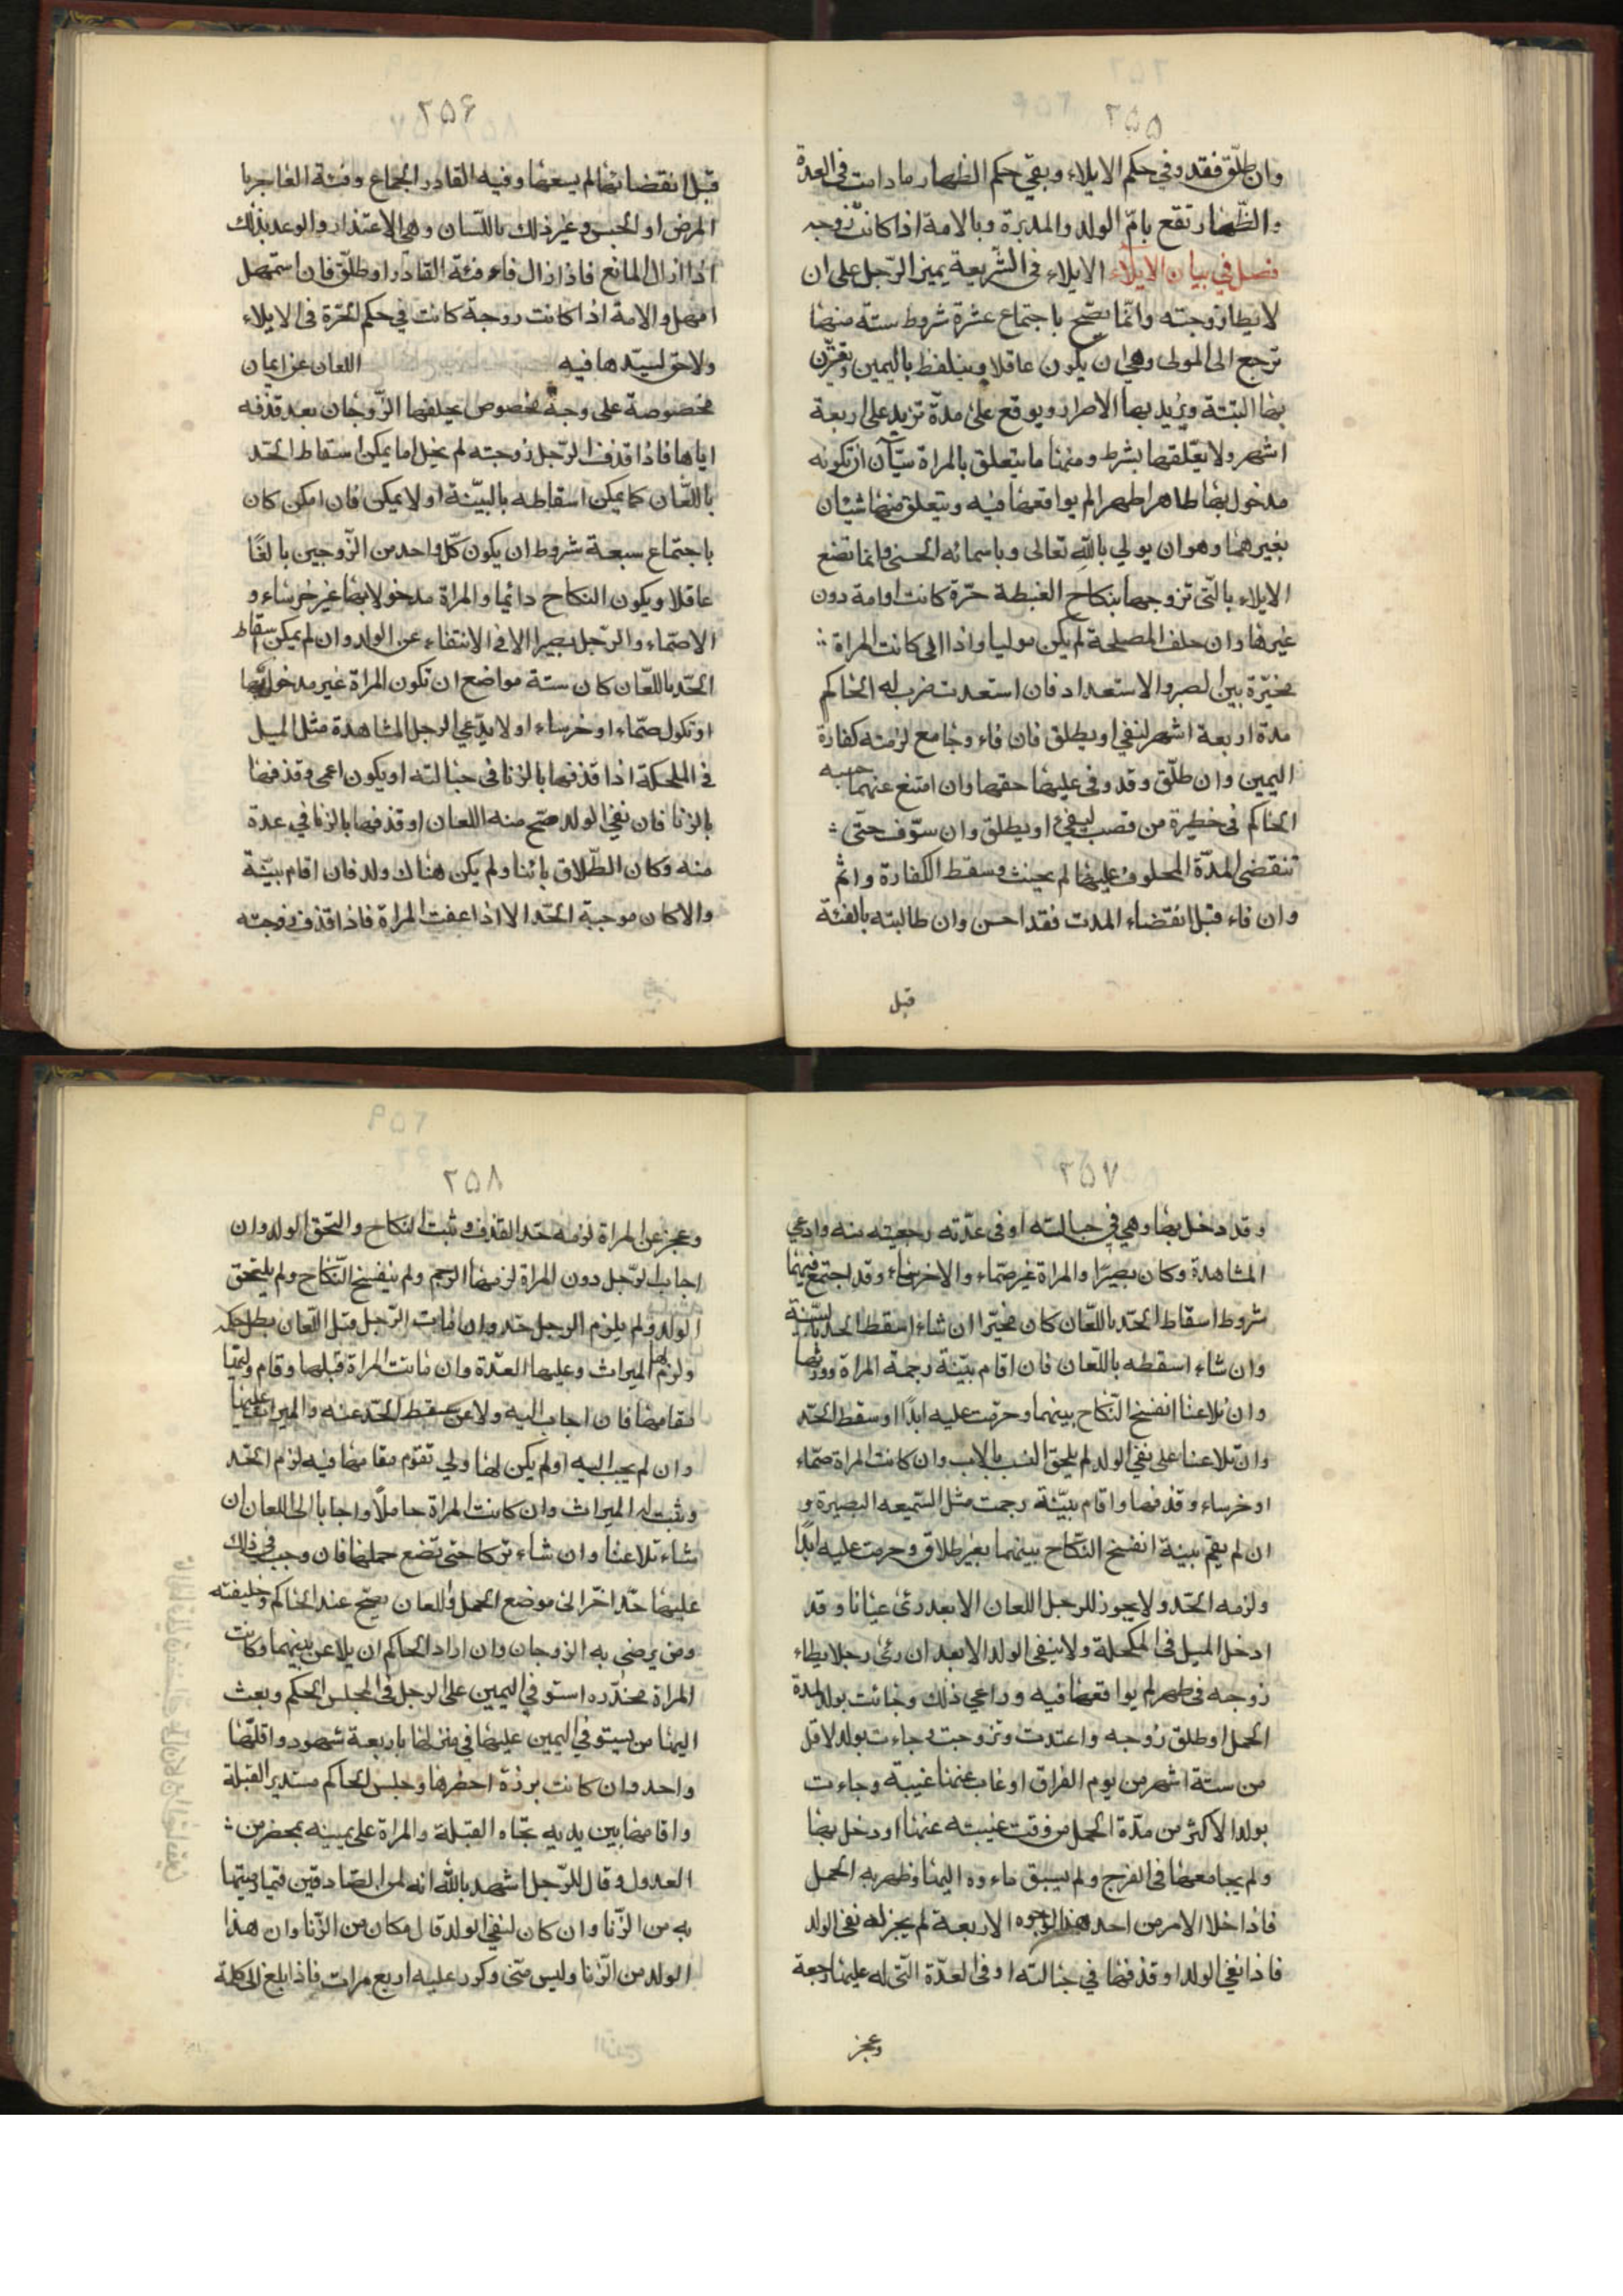 ٢٥٥
وان طلّق فقد وفي حكم الايلاء وبقي حكم الظهار ما دامت في العدة
والظّهار تقع بامّ الولد والمدبرة وبالامة اذا كانت زوجه
فصل في بيان الايلاء الايلاء في الشّريعة يمين الرّجل على ان
لا يطا زوجته وانّما يصّح باجتماع عشرة شروط ستة منها
ترجع الى المولى وهي ان يكون عاقلا ويتلفظ باليمين
بها البتّة ويريد بها الاضرار ويوقع على مدّة تزيد على اربعة
اشهر ولا يعّلقها بشرط ومنها ما يتعلق بالمراة
مدخول بها طاهرا طهرا لم يواقعها فيه ويتعلق منها شيئان
بغيرهما وهو ان يولي بالله تعالى وباسمائه الحسنى وانما تضع
الايلاء بالّتى تزوجها بنكاح الغبطة حرّة كانت او امة دون
غيرها وان حلف المصلحة لم يكن موليا واذا الى كانت المراة
مخيّرة بين الصبر والاستعداد فان استعدت ضرب له الحاكم
مدة اربعة اشهر لنفي او يطلق فان فاء وجامع لزمته كفارة
اليمين وان طلّق وقد وفى عليها حقها وان امتنع عنهما حبسه
الحاكم في خطيرة من قصب ليفئ او يطلق وان سوّف حتّى
تنقضى المدّة المحلوف عليها لم يحنث وسقط الكفارة واثم
وان فاء قبل انقضاء المدت فقد احسن وان طالبته بالفئة
قبل
٢٥۶
قبل انقضائها لم يسعها وفيه القادر الجماع وفئة العاجز با
المرض او الحبس وغير ذلك باللّسان وهي الاعتذار والوعد بذلك
اذا ازال المانع فاذا زال فاء فئة القادر او طلّق فان استمهل
امهل والامة اذا كانت زوجة كانت في حكم الحّرة في الايلاء
ولا حق لسيّدها فيه اللعان عن ايمان
مخصوصة على وجة مخصوص يحلفها الزّوجان بعد قذفه
اياها فاذا قذف الرّجل زوجته لم يخل اما يمكن اسقاط الحّد
باللّعان كما يمكن اسقاطه بالبيّنة او لا يمكن فان امكن كان
باجتماع سبعة شروط ان يكون كلّ واحد من الزّوجين بالغًا
عاقلا ويكون النكاح دائما والمراة مدخولا بها غير خرساء و
الاصّماء والرّجل بصيرا الا في الانتفاء عن الولد وان لم يمكن اسقاط
الحّد باللّعان كان ستة مواضع ان تكون المراة غير مدخول بها
او تكول صّماء او خرساء او لا يدّعي الرجل المشاهدة مثل الميل
في الملحكة اذا قذفها بالزنا في حبالته او يكون اعمى وقذفها
بالزنا فان نفي الولد صّح منه اللعان او قذفها بالزنا في عدة
منه وكان الطّلاق بائنا ولم يكن هناك ولد فان اقام بيّنة
والا كان موجبة الحّد الا اذا عفت المراة فاذا قذف زوجته
٢٥٧
وقد دخل بها وهي في حبالته او في عدّته رجعيته منه وادعي
المشاهدة وكان بصيّرا والمراة غير صّماء والا خرساء وقد اجتمع فيهما
شروط اسقاط الحّد باللّعان كان مخيّرا ان شاء اسقط الحد بالبيّنة
وان شاء اسقطه باللّعان فان اقام بيّنة رجمة المراة وورثها
وان تلاعنا انفسخ النّكاح بينهما وحرّمت عليه ابدًا وسقط الحّد
وان تلاعنا على نفي الولد لم يلحق النسب بالاب وان كانت المراة صّماء
او خرساء وقذفها واقام بيّنة رجمت مثل السّميعه البصيرة و
ان لم يقم بينة انفسخ النّكاح بينهما بغير طلاق وحرمت عليه ابدًا
ولزمه الحّد ولا يجوز للرجل اللعان الا بعد رئى عيانا وقد
ادخل الميل في المكحلة ولا ينفى الولد الا بعد ان رئى رجلا يطاء
زوجه في طهر لم يواقعها فيه وراعي ذلك وجائت بولد لمدة
الحمل او طلق زوجه واعتدت وتزوجت وجاءت بولد لاقل
من ستة اشهر من يوم الفراق او غاب عنها غيبة وجاءت
بولد الاكثر من مدّة الحمل من وقت غيبته عنها او دخل بها
ولم يجامعها في الفرج ولم يسبق ماءوه اليها وظهر به الحمل
فاذا خلا الامر من احد هذا الوجوه الاربعة لم يجز له نفى الولد
فاذا نفي الولد او قذفها في حبالته او في العدّة الّتى له عليها رجعة
وعجز
٢٥٨
وعجز عن المراة لزمه حّد القذف وثبت النكاح والتحق الولد وان
اجاب الرّجل دون المراة لزمها الرجم ولم ينفسخ النّكاح ولم يلتحق
الولد ولم يلزم الرجل حّد وان مات الرّجل قبل اللّعان بطل حكمه
ولزم لها الميراث وعليها العدّة وان ماتت المراة قبلها وقام وليّها
مقامها فان اجاب اليه ولاعن سقط الحّد عنه والميراث عليها
وان لم يجب اليه او لم يكن لها ولي تقوّم مقامها فيه لزم الحّد
وثبت له الميراث وان كانت المراة حاملًا واجابا الى اللعان ان
شاء تلاعنا وان شاء تركا حتى تضع حملها فان وجب في ذلك
عليها حّد اخّر الى موضع الحمل واللعان يصّح عند الحاكم وخليفته
ومن يرضى به الزوجان وان اراد الحاكم ان يلاعن بينهما وكانت
المراة مخدّره استوفي اليمين على الرجل في المجلس الحكم وبعث
اليها من يستوفي اليمين عليها في منزلها باربعة شهود واقلّها
واحد وان كانت برزة احضرها وجلس الحاكم مستدبر القبلة
واقامها بين يديه تجاه القبلة والمراة على يمينه بمحضر من
العدول وقال للرّجل اشهد بالله انه لمن الصّادقين فيما رميتها
به من الزّنا وان كان لنفي الولد قال مكان من الزّنا وان هذا
الولد من الزّنا وليس منّي وكرر عليه اربع مرات فاذا بلغ الى كلمة